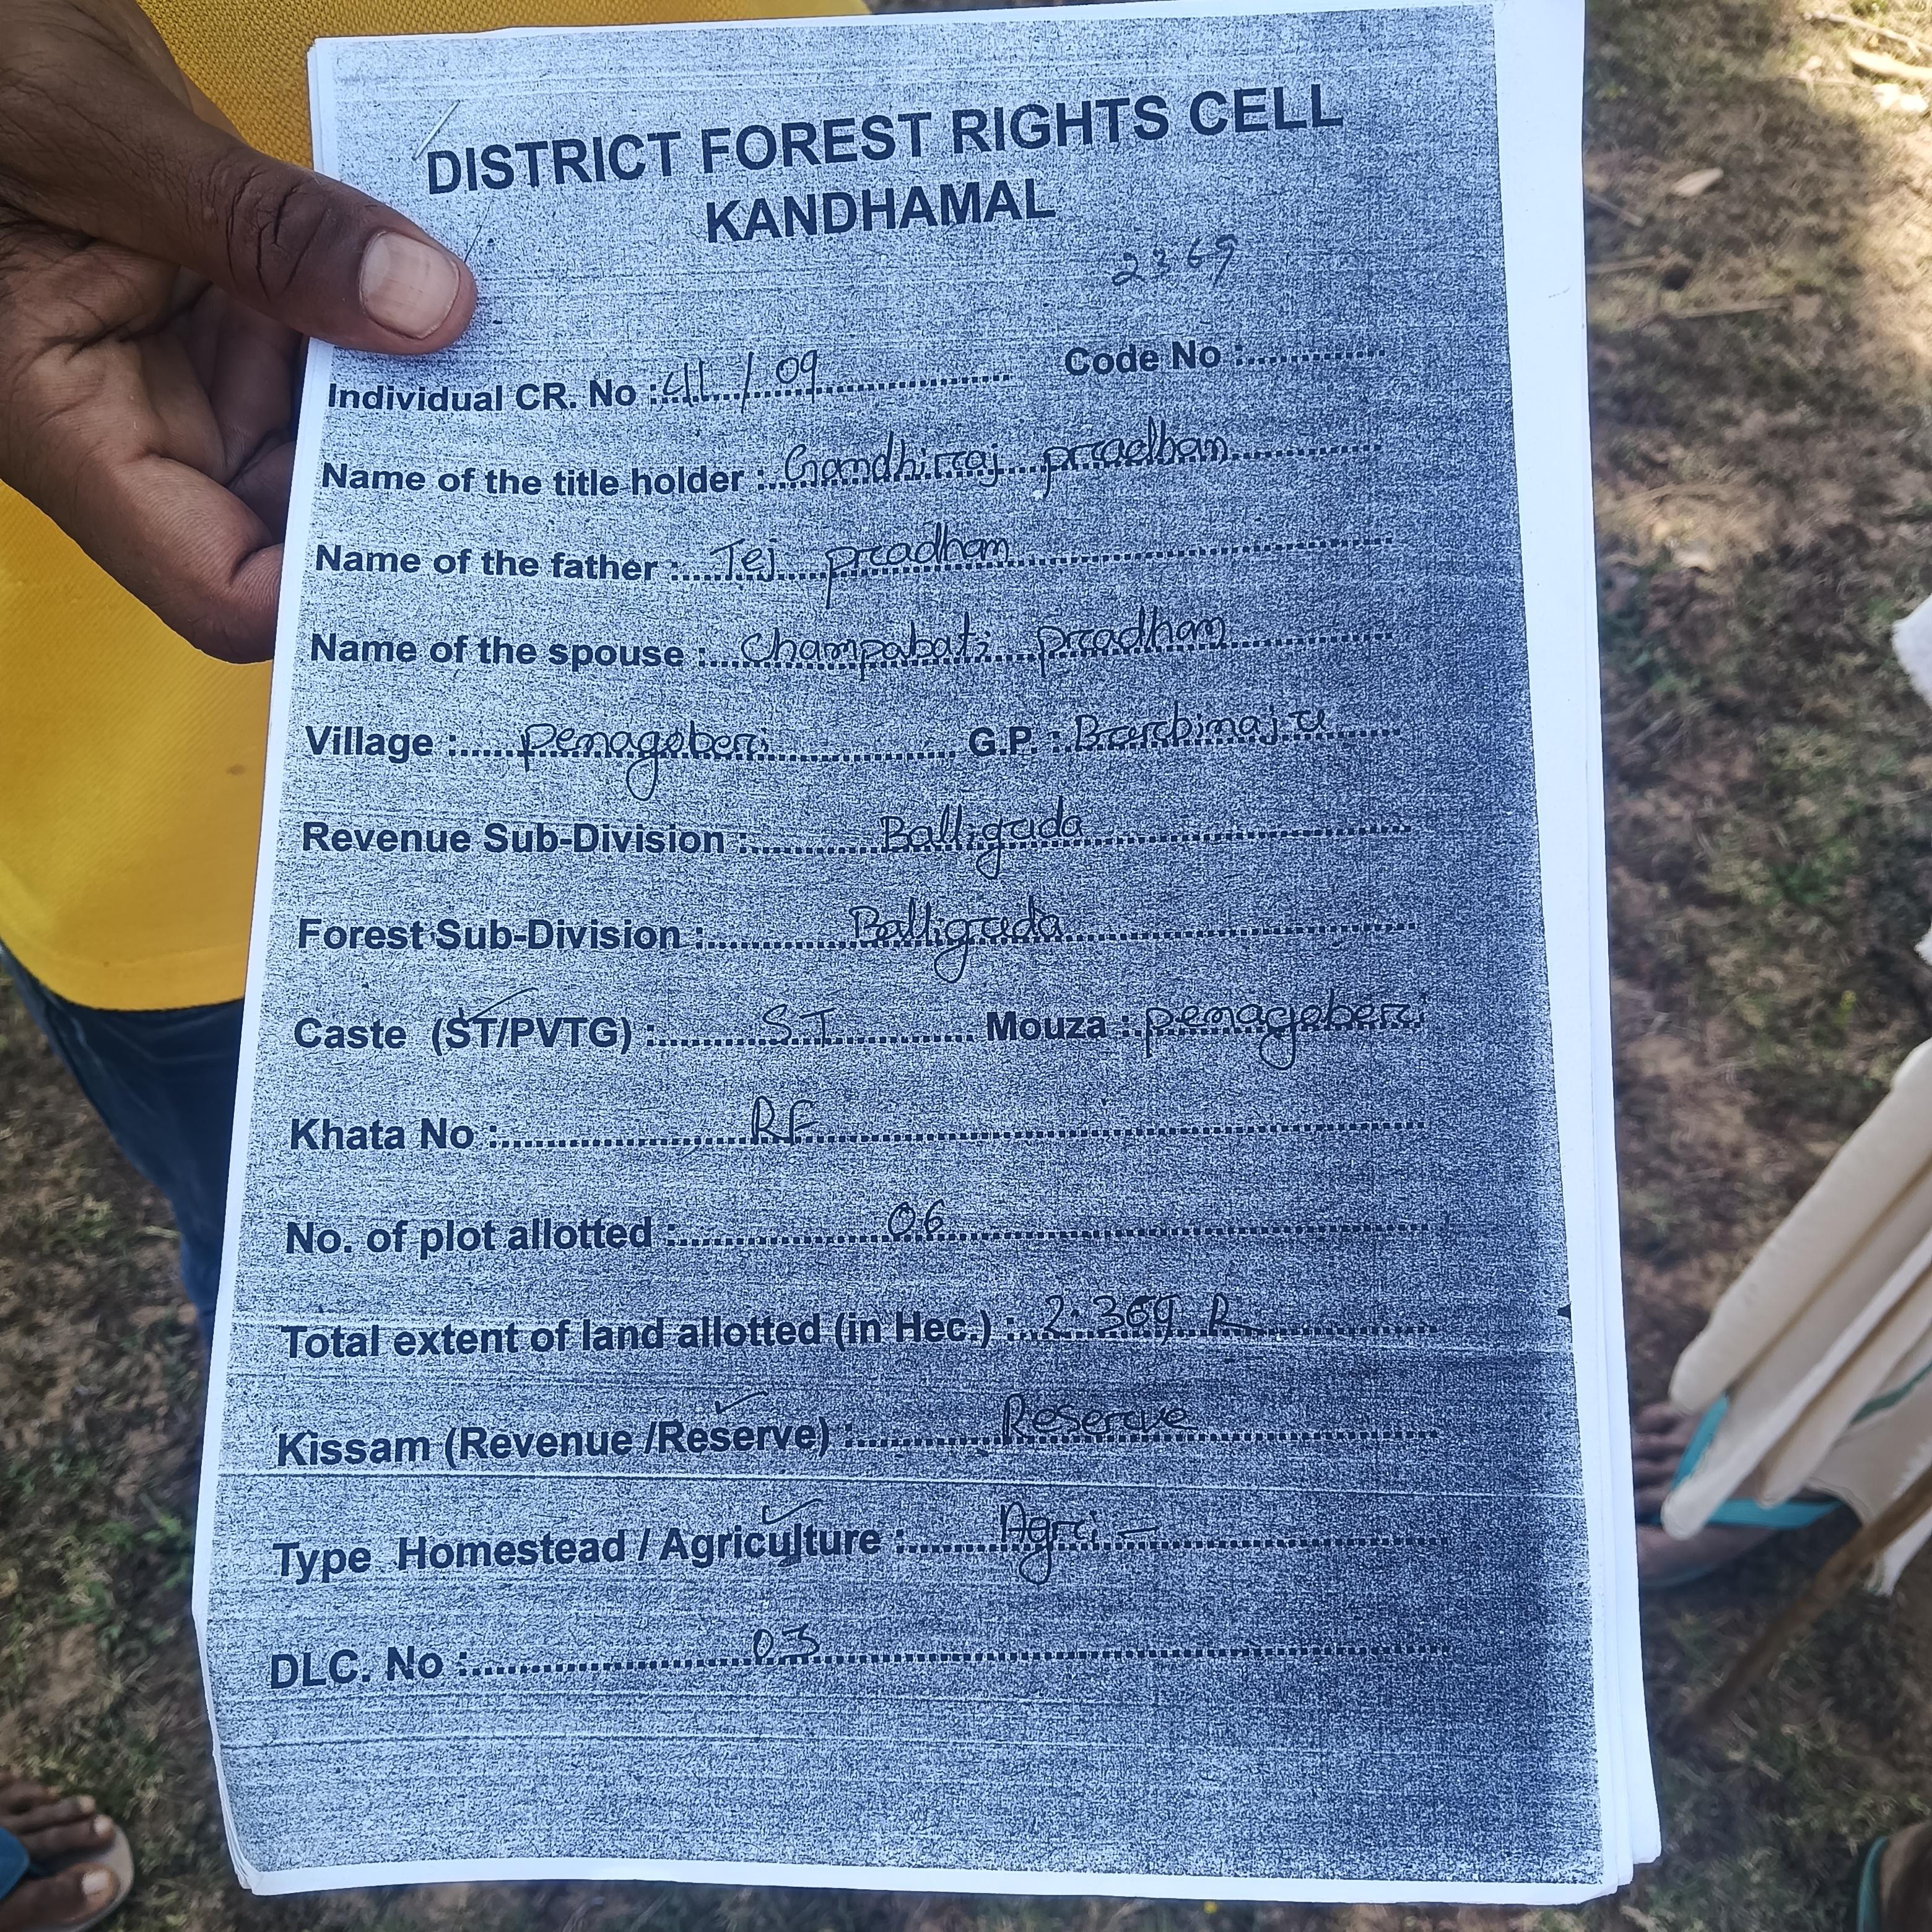 DISTRICT FOREST RIGHTS CELL
KANDHAMAL
2369
Individual CR. No : 411 / 09 Code No :
Name of the title holder : Gandhirraj pradhan
Name of the father : Tej pradhan
Name of the spouse : Champabati pradhan
Village : penagaberi G.P. :
Revenue Sub-Division : Balliguda
Forest Sub-Division : Balliguda
Caste (ST/PVTG) : ST Mouza : penagaberi
Khata No : RF
No. of plot allotted : 06
Total extent of land allotted (in Hec.) : 2.369 R
Kissam (Revenue /Reserve) : Reserve
Type Homestead / Agriculture : Agri -
DLC. No : 03